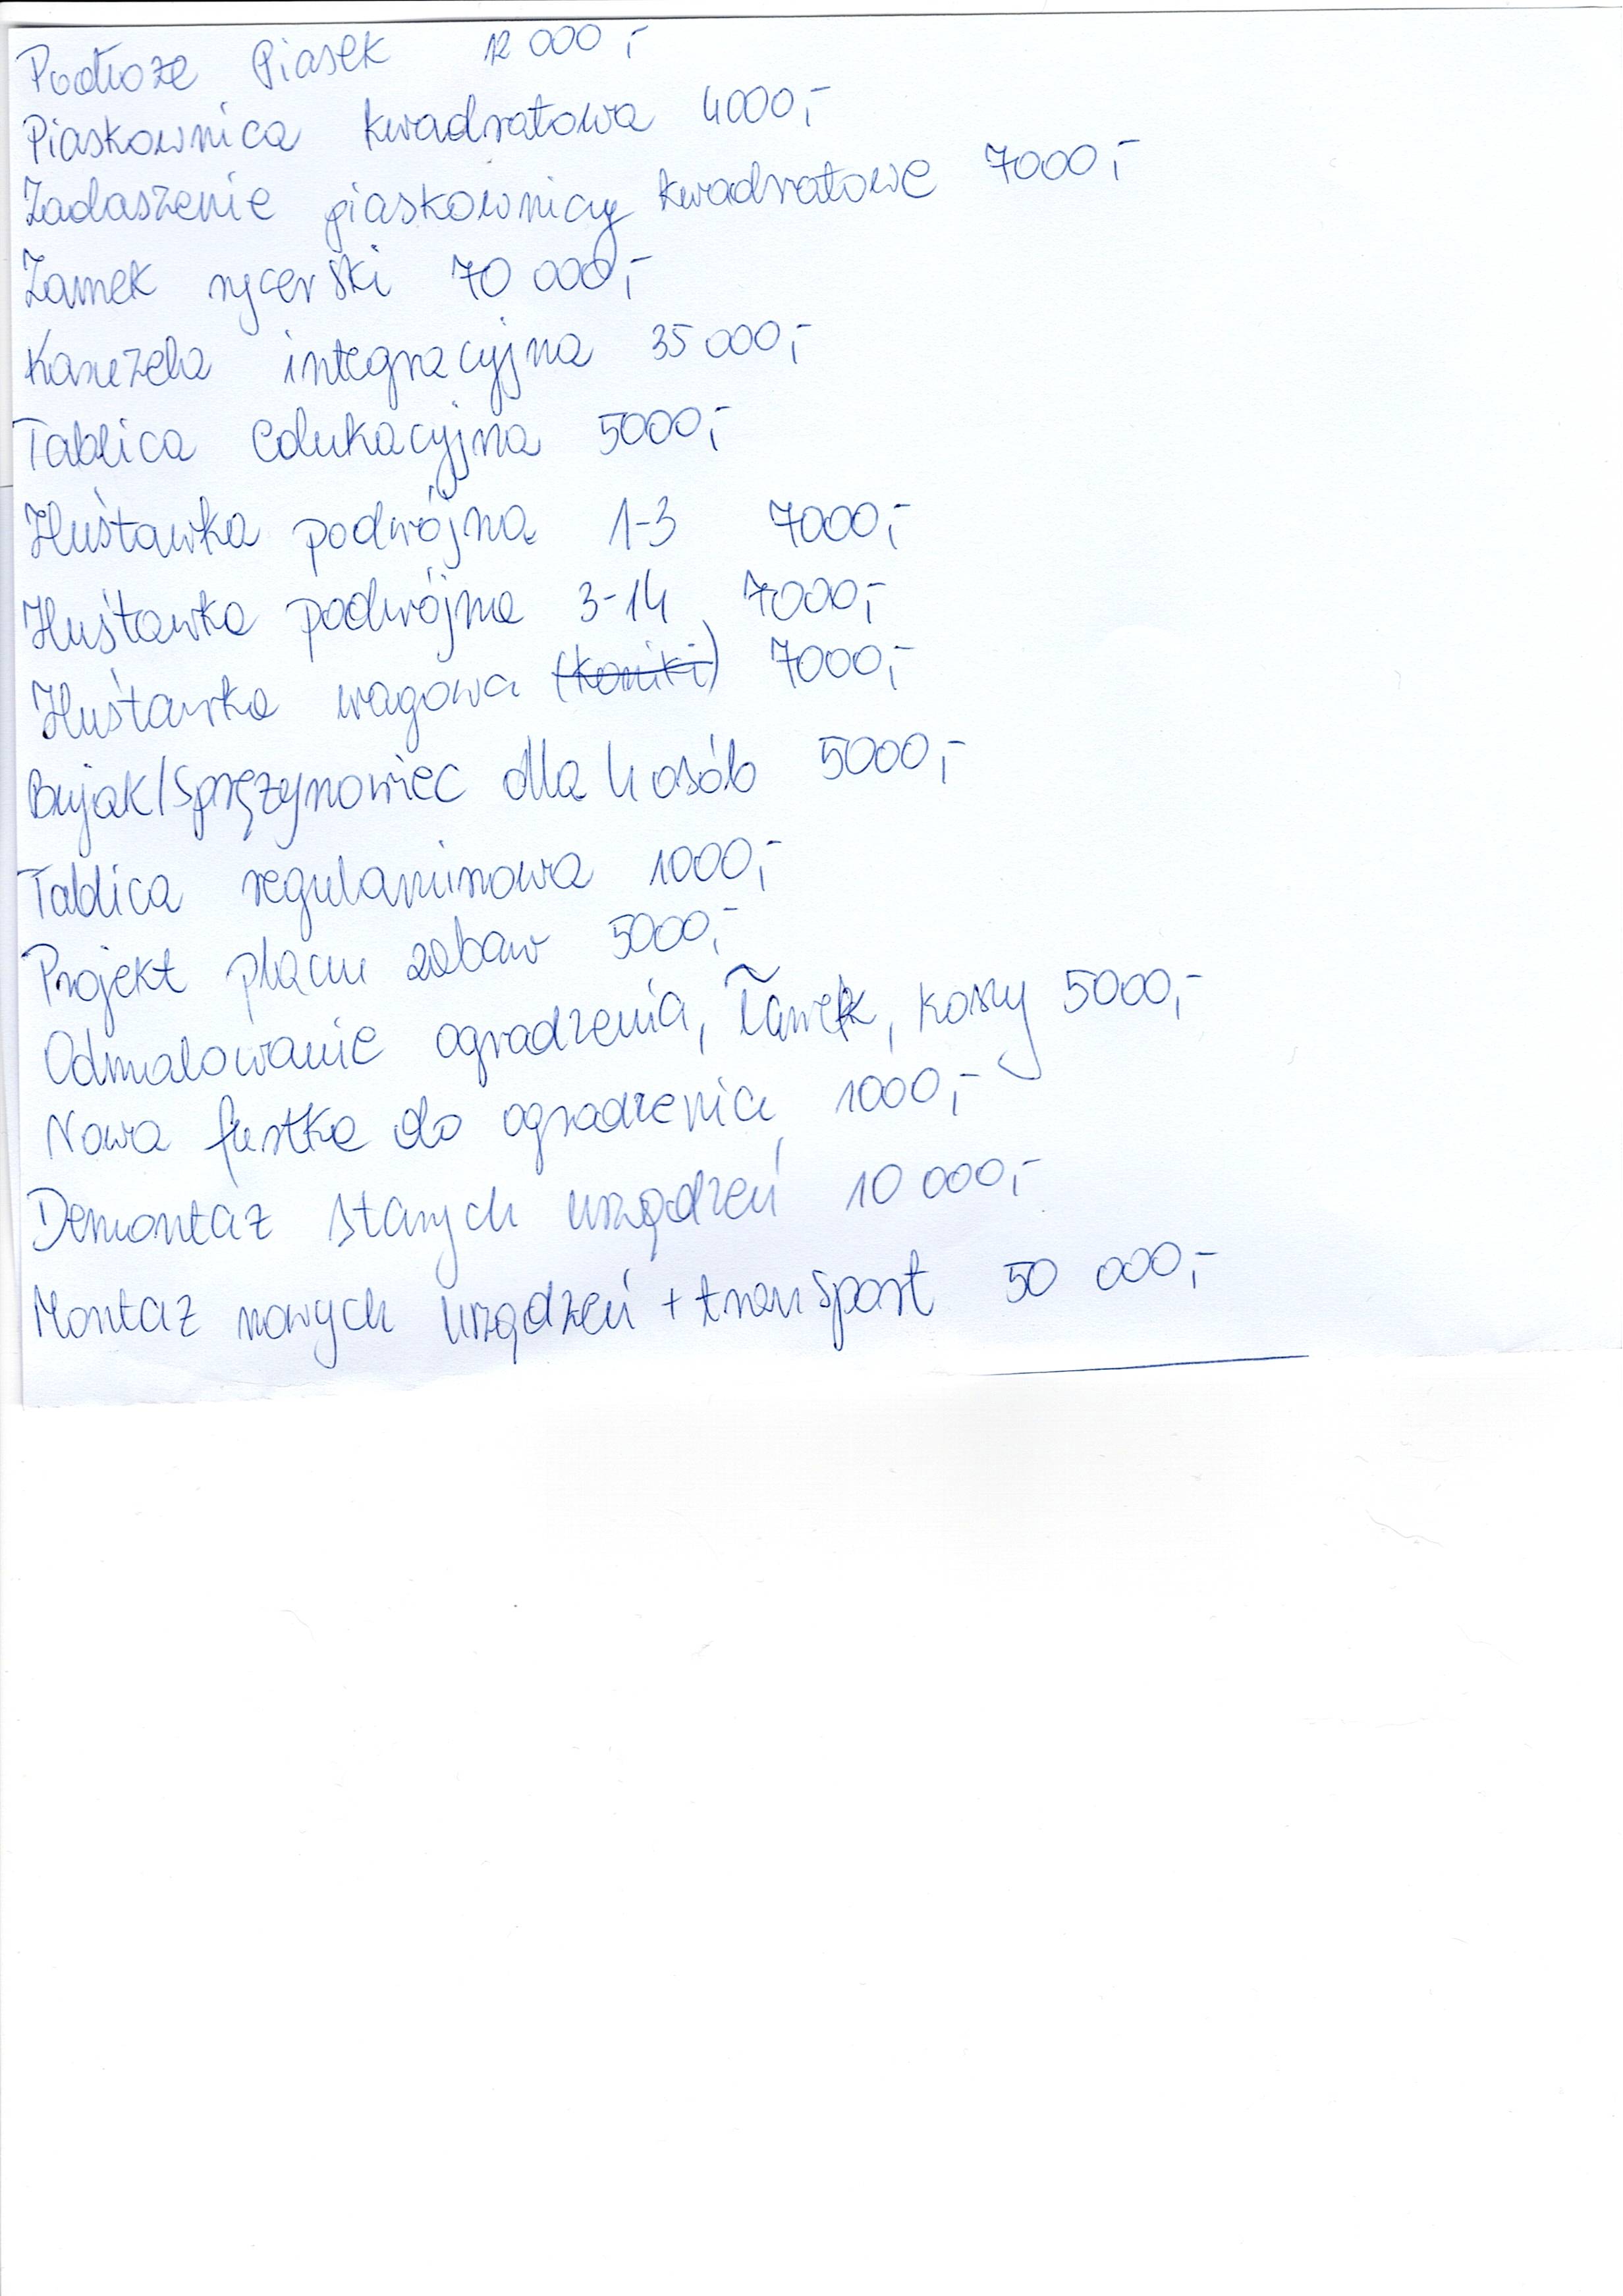 Podłoże Piasek 12 000,-
Piaskownica kwadratowa 4000,-
Zadaszenie piaskownicy kwadratowe 7000,-
Zamek rycerski 70 000,-
Karuzela integracyjna 35 000,-
Tablica edukacyjna 5000,-
Huśtawka podwójna 1-3 7000,-
Huśtawka podwójna 3-14 7000,-
Huśtawka wagowa (koniki) 7000,-
Bujak/Sprężynowiec dla 4 osób 5000,-
Tablica regulaminowa 1000,-
Projekt placu zabaw 5000,-
Odmalowanie ogrodzenia, ławek, koszy 5000,-
Nowa furtka do ogrodzenia 1000,-
Demontaż starych urządzeń 10 000,-
Montaż nowych urządzeń + transport 50 000,-